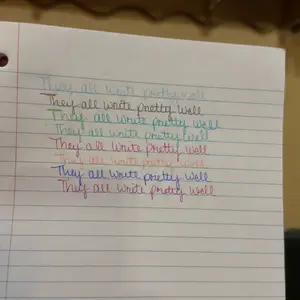 They all write pretty well
They all write pretty well
They all write pretty well
They all write pretty well
They all write pretty well
They all write pretty well
They all write pretty well
They all write pretty well